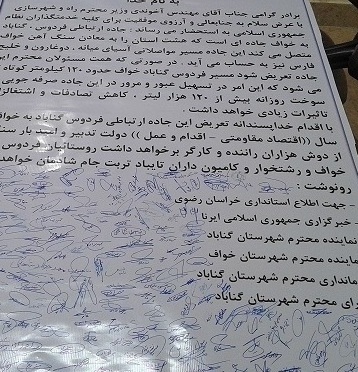 به نام خدا
برادر گرامی جناب آقای مهندس آخوندی وزیر محترم راه و شهرسازی
با عرض سلام به جنابعالی و آرزوی موفقیت برای کلیه خدمتگذاران نظام
جمهوری اسلامی به استحضار می رساند : جاده ارتباطی فردوس ، گناباد
به خواف جاده ای است که هشت استان را به معادن سنگ آهن خواف
متصل می کند این جاده مسیر مواصلاتی آسیای میانه ، دوغارون و خلیج
فارس نیز به حساب می آید . در صورتی که همت مسئولان محترم این
جاده تعریض شود مسیر فردوس گناباد خواف حدود ۱۲۰ کیلومتر کوتاه
می شود که این امر در تسهیل عبور و مرور در این جاده صرفه جویی
سوخت روزانه بیش از ۱۲۰ هزار لیتر ، کاهش تصادفات و اشتغالزا
تاثیرات زیادی خواهد داشت .
با اقدام خداپسندانه تعریض این جاده ارتباطی فردوس گناباد به خواف
سال ((اقتصاد مقاومتی – اقدام و عمل )) دولت تدبیر و امید بار سنگ
از دوش هزاران راننده و کارگر برخواهد داشت روستائیان فردوس
خواف و رشتخوار و کامیون داران تایباد تربت جام شادمان خواهند
رونوشت :
- جهت اطلاع استانداری خراسان رضوی
خبرگزاری جمهوری اسلامی ایرنا
نماینده محترم شهرستان گناباد
نماینده محترم شهرستان خواف
مانداری محترم شهرستان گناباد
رای محترم شهرستان گناباد